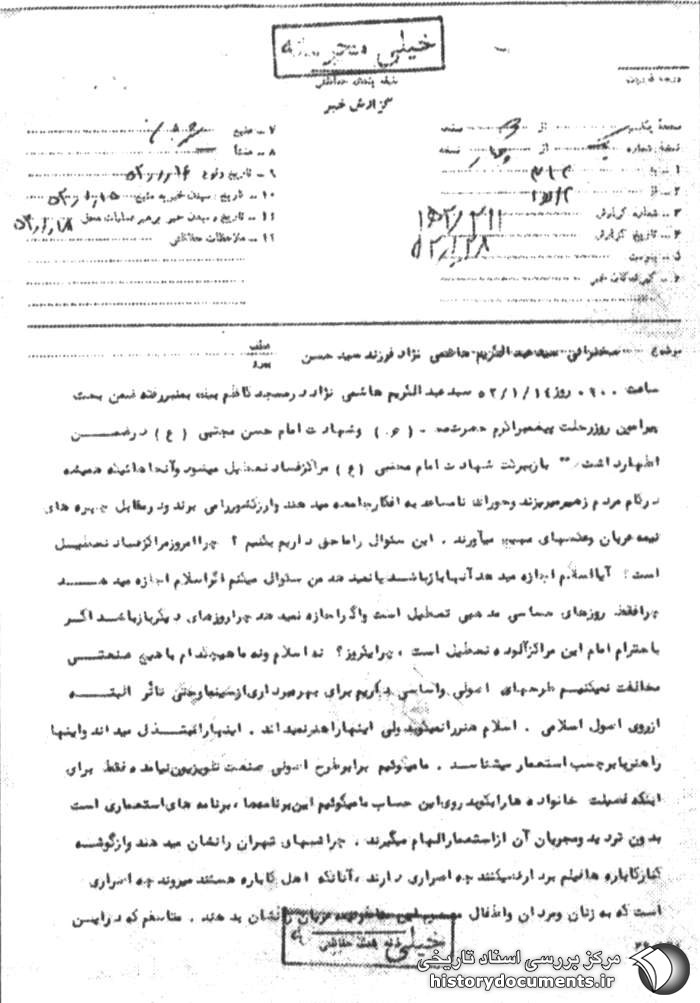 خیلی محرمانه
طبقه بندی حفاظتی
گزارش خبر
صفحه یک از صفحه
نسخه شماره از نسخه
۱ - به ۳۱۲
۲ - از
۳ - شماره گزارش
۴ - تاریخ گزارش ۵۲/۱/۲۸
۵ - پیوست
۶ - گیرندگان خبر
۷ - منبع
۸ - منشأ
۹ - تاریخ وقوع
۱۰ - تاریخ رسیدن خبر به منبع
۱۱ - تاریخ رسیدن خبر به رهبر عملیات محل ۵۲/۱/۱۸
۱۲ - ملاحظات حفاظتی
موضوع سخنرانی سید عبدالکریم هاشمی نژاد فرزند سید حسن
عطف
پیرو
ساعت ۰۹۰۰ روز ۵۲/۱/۱۴ سید عبدالکریم هاشمی نژاد در مسجد کاظم بیک بمنبر رفته ضمن بحث
پیرامون روز رحلت پیغمبر اکرم حضرت محمد (ص) و شهادت امام حسن مجتبی (ع) در ضمن
اظهار داشت بازبمناسبت شهادت امام مجتبی (ع) مراکز فساد تعطیل میشود و آنجا هائیکه همیشه
در کام مردم زهر میریزند و خوراک نامساعد به افکار جامعه میدهند و ارز کشور را می برند و در مقابل چهره های
نیمه عریان و عکسهای مهیج میآورند . این سئوال را ما حق داریم بکنیم ؟ چرا امروز مراکز فساد تعطیل
است ؟ آیا اسلام اجازه میدهد آنها باز باشد یا نمیدهد من سئوال میکنم اگر اسلام اجازه میدهد
چرا فقط روزهای حساس مذهبی تعطیل است و اگر اجازه نمیدهد چرا روزهای دیگر باز باشد اگر
باحترام امام این مراکز آلوده تعطیل است ، چرا یکروز ؟ نه اسلام و نه ما هیچکدام با هیچ صنعتی
مخالفت نمیکنیم طرحهای اصولی و اساسی داریم برای بهره برداری از سینما و حتی تأتر البته
از روی اصول اسلامی . اسلام هنر را نمیکوبد ولی اینها را هنر نمیداند . اینها را مبتذل میداند و اینها
را هنر با برچسب استعمار میشناسد . ما میگوئیم برابر طرح اصولی صنعت تلویزیون نیامده فقط برای
اینکه فضیلت خانواده ها را بکوبد روی این حساب ما میگوئیم این برنامه ها ، برنامه های استعماری است
بدون تردید و مجریان آن از استعمار الهام میگیرند . چرا شبهای تهران را نشان میدهند و از گوشه
کنار کاباره ها فیلمبرداری میکنند چه اصراری دارند ، آنانکه اهل کاباره هستند میروند چه اصراری
است که به زنان و مردان و اطفال عریان را نشان بدهند . متأسفم که در این
خیلی
طبقه بندی حفاظتی
مرکز بررسی اسناد تاریخی
historydocuments.ir